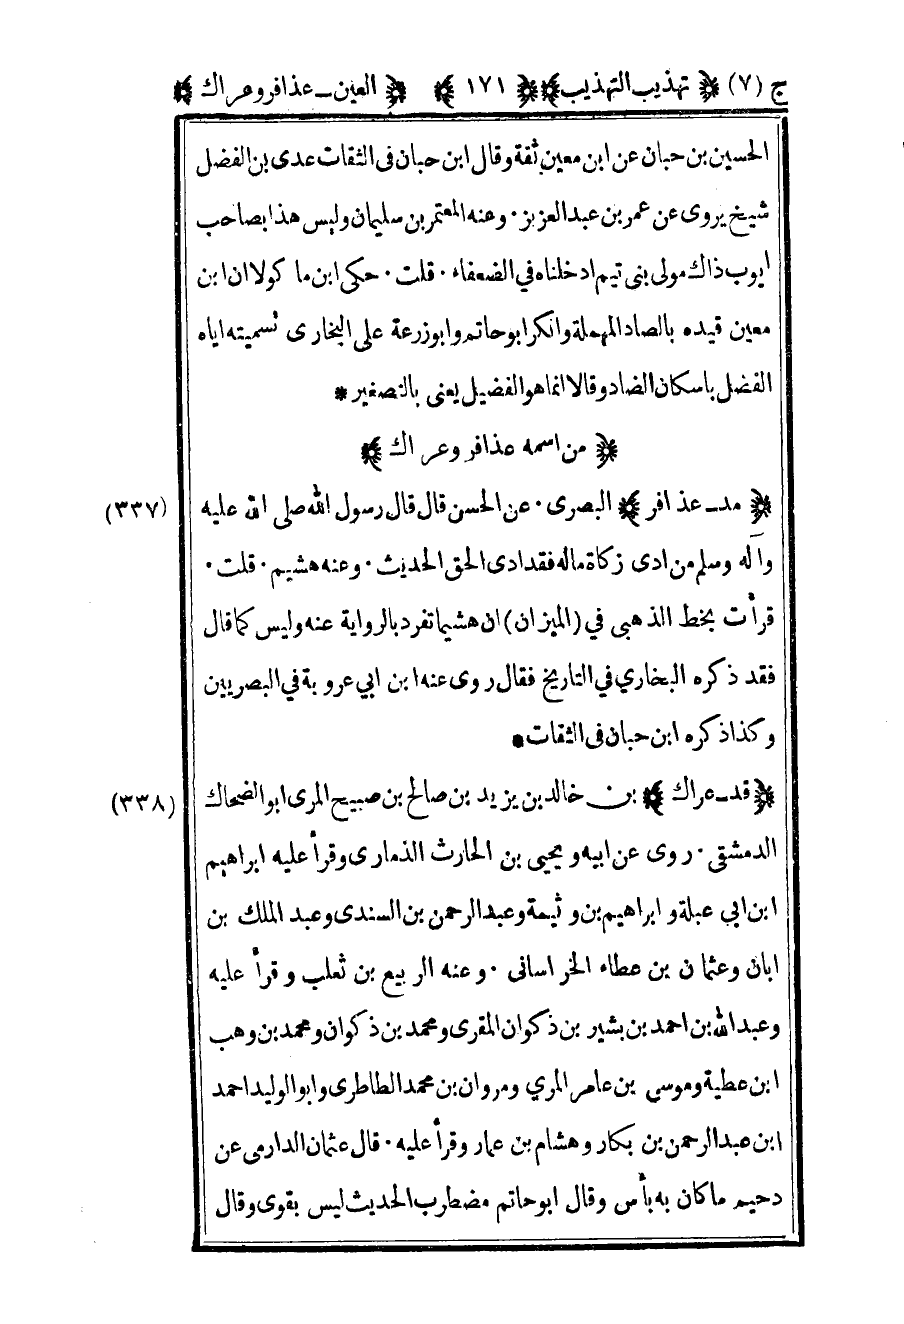 ج (٧) ﴿ تهذيب التهذيب ﴾ ﴿ ١٧١ ﴾ ﴿ العين ـ عذافر وعراك ﴾
الحسين بن حبان عن ابن معين ثقة وقال ابن حبان فى الثقات عدى بن الفضل
شيخ يروى عن عمر بن عبدالعزيز ٠ وعنه المعتمر بن سليمان وليس هذا بصاحب
ايوب ذاك مولى بنى تيم ادخلناه في الضعفاء ٠ قلت ٠ حكى ابن ما كولا ان ابن
معين قيده بالصاد المهملة وانكر ابوحاتم وابوزرعة على البخارى تسميته اياه
الفضل باسكان الضاد وقالا انما هو الفضيل يعنى بالتصغير *
﴿ من اسمه عذافر وعراك ﴾
(٣٣٧) ﴿ مد ـ عذافر ﴾ البصرى ٠ عن الحسن قال قال رسول الله صلى الله عليه
وآله وسلم من ادى زكاة ماله فقد ادى الحق الحديث ٠ وعنه هشيم ٠ قلت ٠
قرأت بخط الذهبى في (الميزان) ان هشيما تفرد بالرواية عنه وليس كما قال
فقد ذكره البخاري في التاريخ فقال روى عنه ابن ابي عروبة في البصريين
وكذا ذكره ابن حبان فى الثقات *
(٣٣٨) ﴿ قد ـ عراك ﴾ بن خالد بن يزيد بن صالح بن صبيح المرى ابو الضحاك
الدمشقى ٠ روى عن ابيه ويحيى بن الحارث الذمارى وقرأ عليه ابراهيم
ابن ابي عبلة و ابراهيم بن وثيمة وعبدالرحمن بن السندى وعبد الملك بن
ابان وعثمان بن عطاء الخراسانى ٠ وعنه الربيع بن ثعلب وقرأ عليه
وعبدالله بن احمد بن بشير بن ذكوان المقرى ومحمد بن ذكوان ومحمد بن وهب
ابن عطية وموسى بن عامر المري ومروان بن محمد الطاطرى وابو الوليد احمد
ابن عبدالرحمن بن بكار وهشام بن عمار وقرأ عليه ٠ قال عثمان الدارمى عن
دحيم ما كان به بأس وقال ابوحاتم مضطرب الحديث ليس بقوى وقال